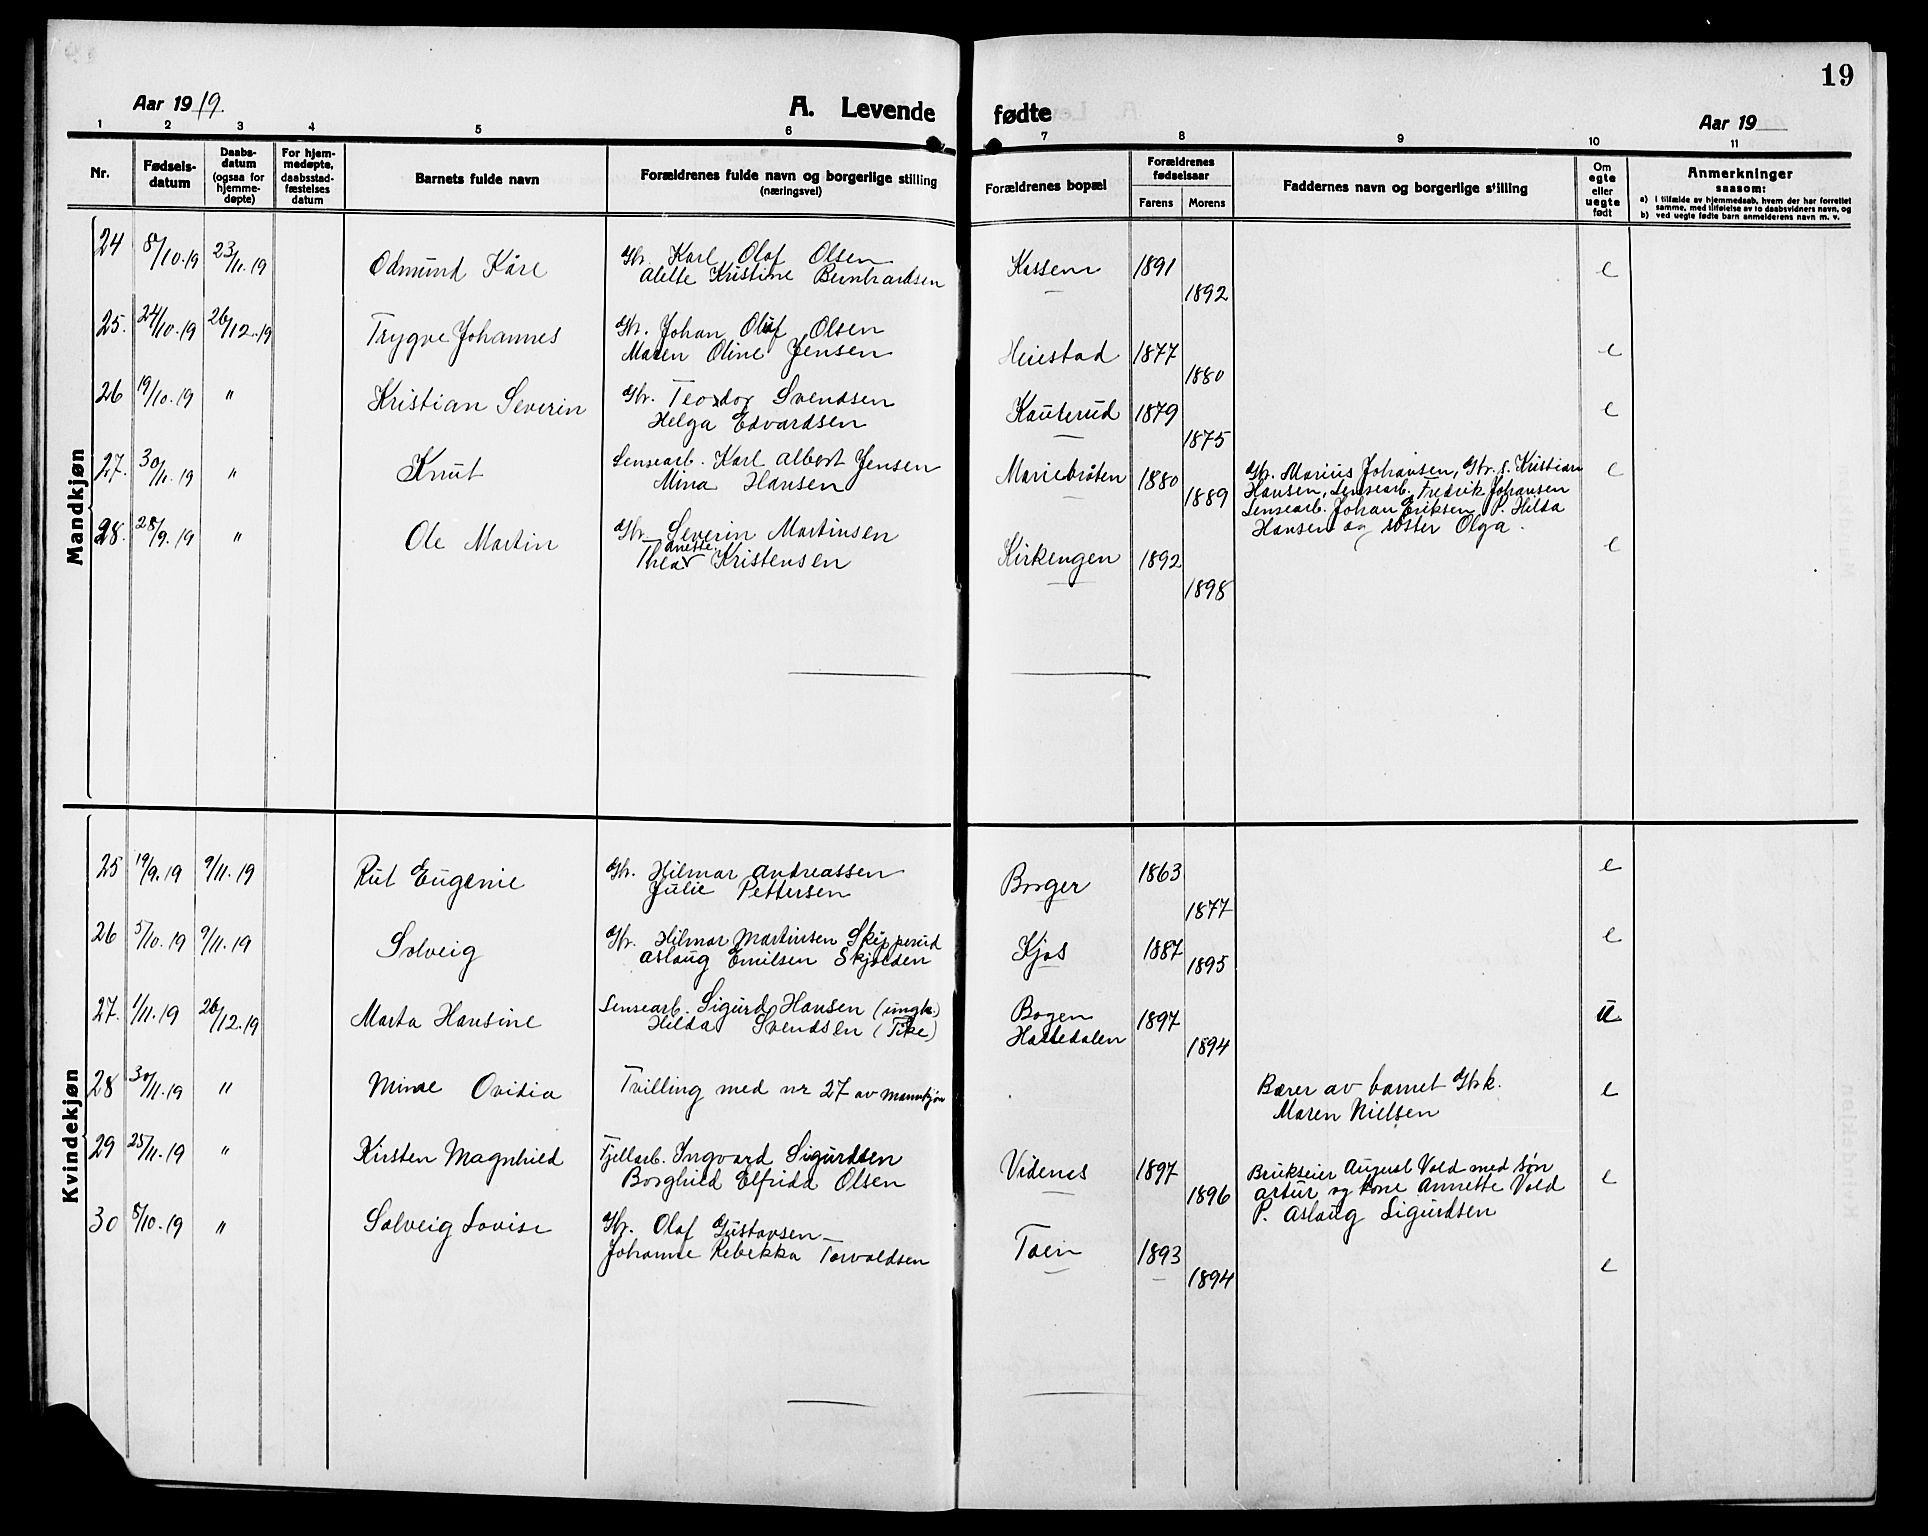 19
Aar 1919.
A. Levende fødte
Aar 19
1 2 3 4 5 6 7 8 9 10 11
Nr.
Fødsels-
datum
Daabs-
datum
(ogsaa for
hjemme-
døpte)
For hjem-
medøpte,
daabsstad-
fæstelses
datum
Barnets fulde navn
Forældrenes fulde navn og borgerlige stilling
(næringsvei)
Forældrenes bopæl
Forældrenes
fødselsaar
Farens Morens
Faddernes navn og borgerlige stilling
Om
egte
eller
uegte
født
Anmerkninger
saasom:
a) i tilfælde av hjemmedaab, hvem der har forrettet
samme, med tilføielse av to daabsvidners navn, og
b) ved uegte fødte barn anmelderens navn m. v.
Mandkjøn
24 8/10.19 23/11.19 Odmund Kåre Gbr. Karl Olaf Olsen Kassem 1891 e
Alette Kristine Bernhardsen 1892
25. 24/10.19 26/12.19 Trygve Johannes Gbr. Johan Oluf Olsen Heiestad 1877 e
Maren Oline Jensen 1880
26 19/10.19 " Kristian Severin Gbr. Teodor Svendsen Kauterud 1879 e
Helga Edvardsen 1875
27. 30/11.19 " Knut Lensearb. Karl Albert Jensen Mariebråten 1880 Gbr. Marius Johansen, Gbr. s. Kristian e
Mina Hansen 1889 Hansen, Lensearb. Fredrik Johansen
Lensearb. Johan Eriksen, P. Hilda
Hansen og søster Olga.
28. 28/9.19 " Ole Martin Gbr. Severin Martinsen Kirkengen 1892 e
Thea anette Kristensen 1898
Kvindekjøn
25 19/9.19 9/11.19 Rut Eugenie Gbr. Hilmar Andreassen Borger 1863 e
Julie Pettersen 1877
26 5/10.19 9/11.19 Solveig Gbr. Hilmar Martinsen Skipperud Kjos 1887 e
Aslaug Emilsen Skjolden 1895
27. 1/11.19 26/12.19 Marta Hansine Lensearb. Sigurd Hansen (ungk.) Bogen 1897 u
Hilda Svendsen (Pike) Halledalen 1894
28 30/11.19 " Minnie Ovidia Tvilling med nr 27 av mannkjøn Bærer av barnet Gbrk. e
Maren Nielsen
29 25/11.19 " Kirsten Magnhild Fjellarb. Ingvard Sigurdsen Videnes 1897 Brukseier August Vold med søn e
Borghild Elfrida Olsen 1896 Artur og kone Annette Vold
P. Aslaug Sigurdsen
30 8/10.19 " Solveig Lovise Gbr. Olaf Gustavsen Toen 1893 e
Johanne Rebekka Torvaldsen 1894